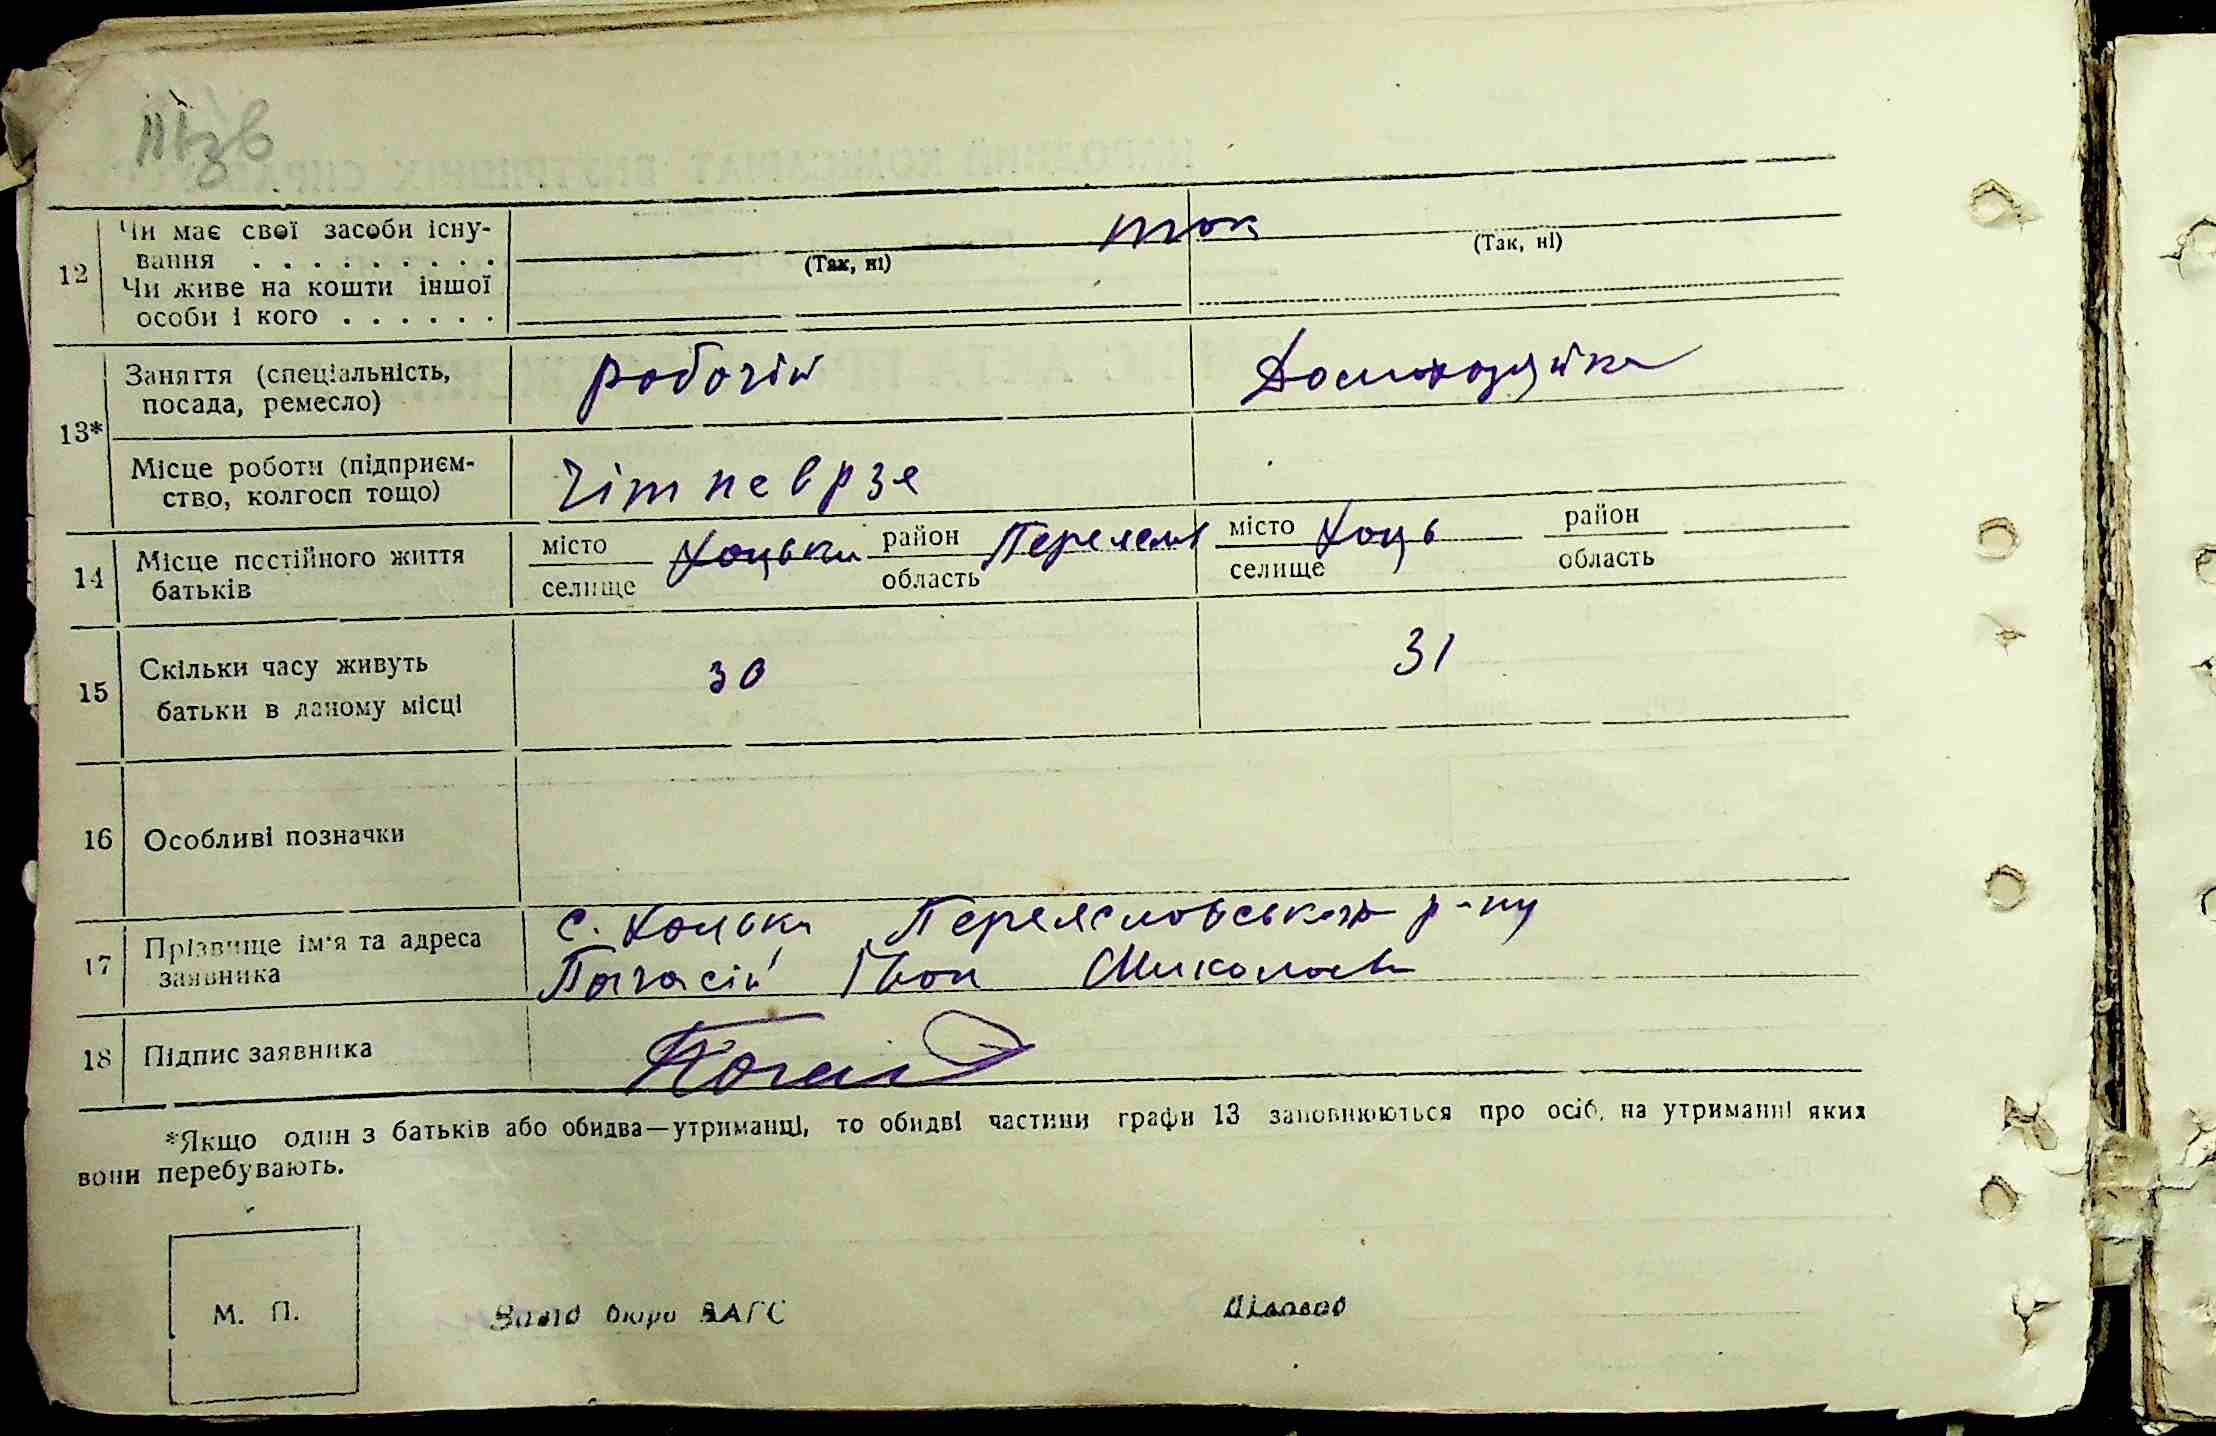 12 Чи має свої засоби існу-
вання . . . . . . . . . так
(Так, ні) (Так, ні)
Чи живе на кошти іншої
особи і кого . . . . . .
13* Заняття (спеціальність, посада, ремесло) робочій Домохозяйка
Місце роботи (підприєм-
ство, колгосп тощо)
14 Місце постійного життя батьків місто селище Хоцьки район область Переясл місто селище Хоць район область
15 Скільки часу живуть
батьки в даному місці 30 31
16 Особливі позначки
17 Прізвище ім'я та адреса заявника с. Хоцьки Переясловського р-ну
Іван Миколаев
18 Підпис заявника
*Якщо один з батьків або обидва—утриманці, то обидві частини графи 13 заповнюються про осіб, на утриманні яких
вони перебувають.
М. П.
бюро ЗАГС Діловод